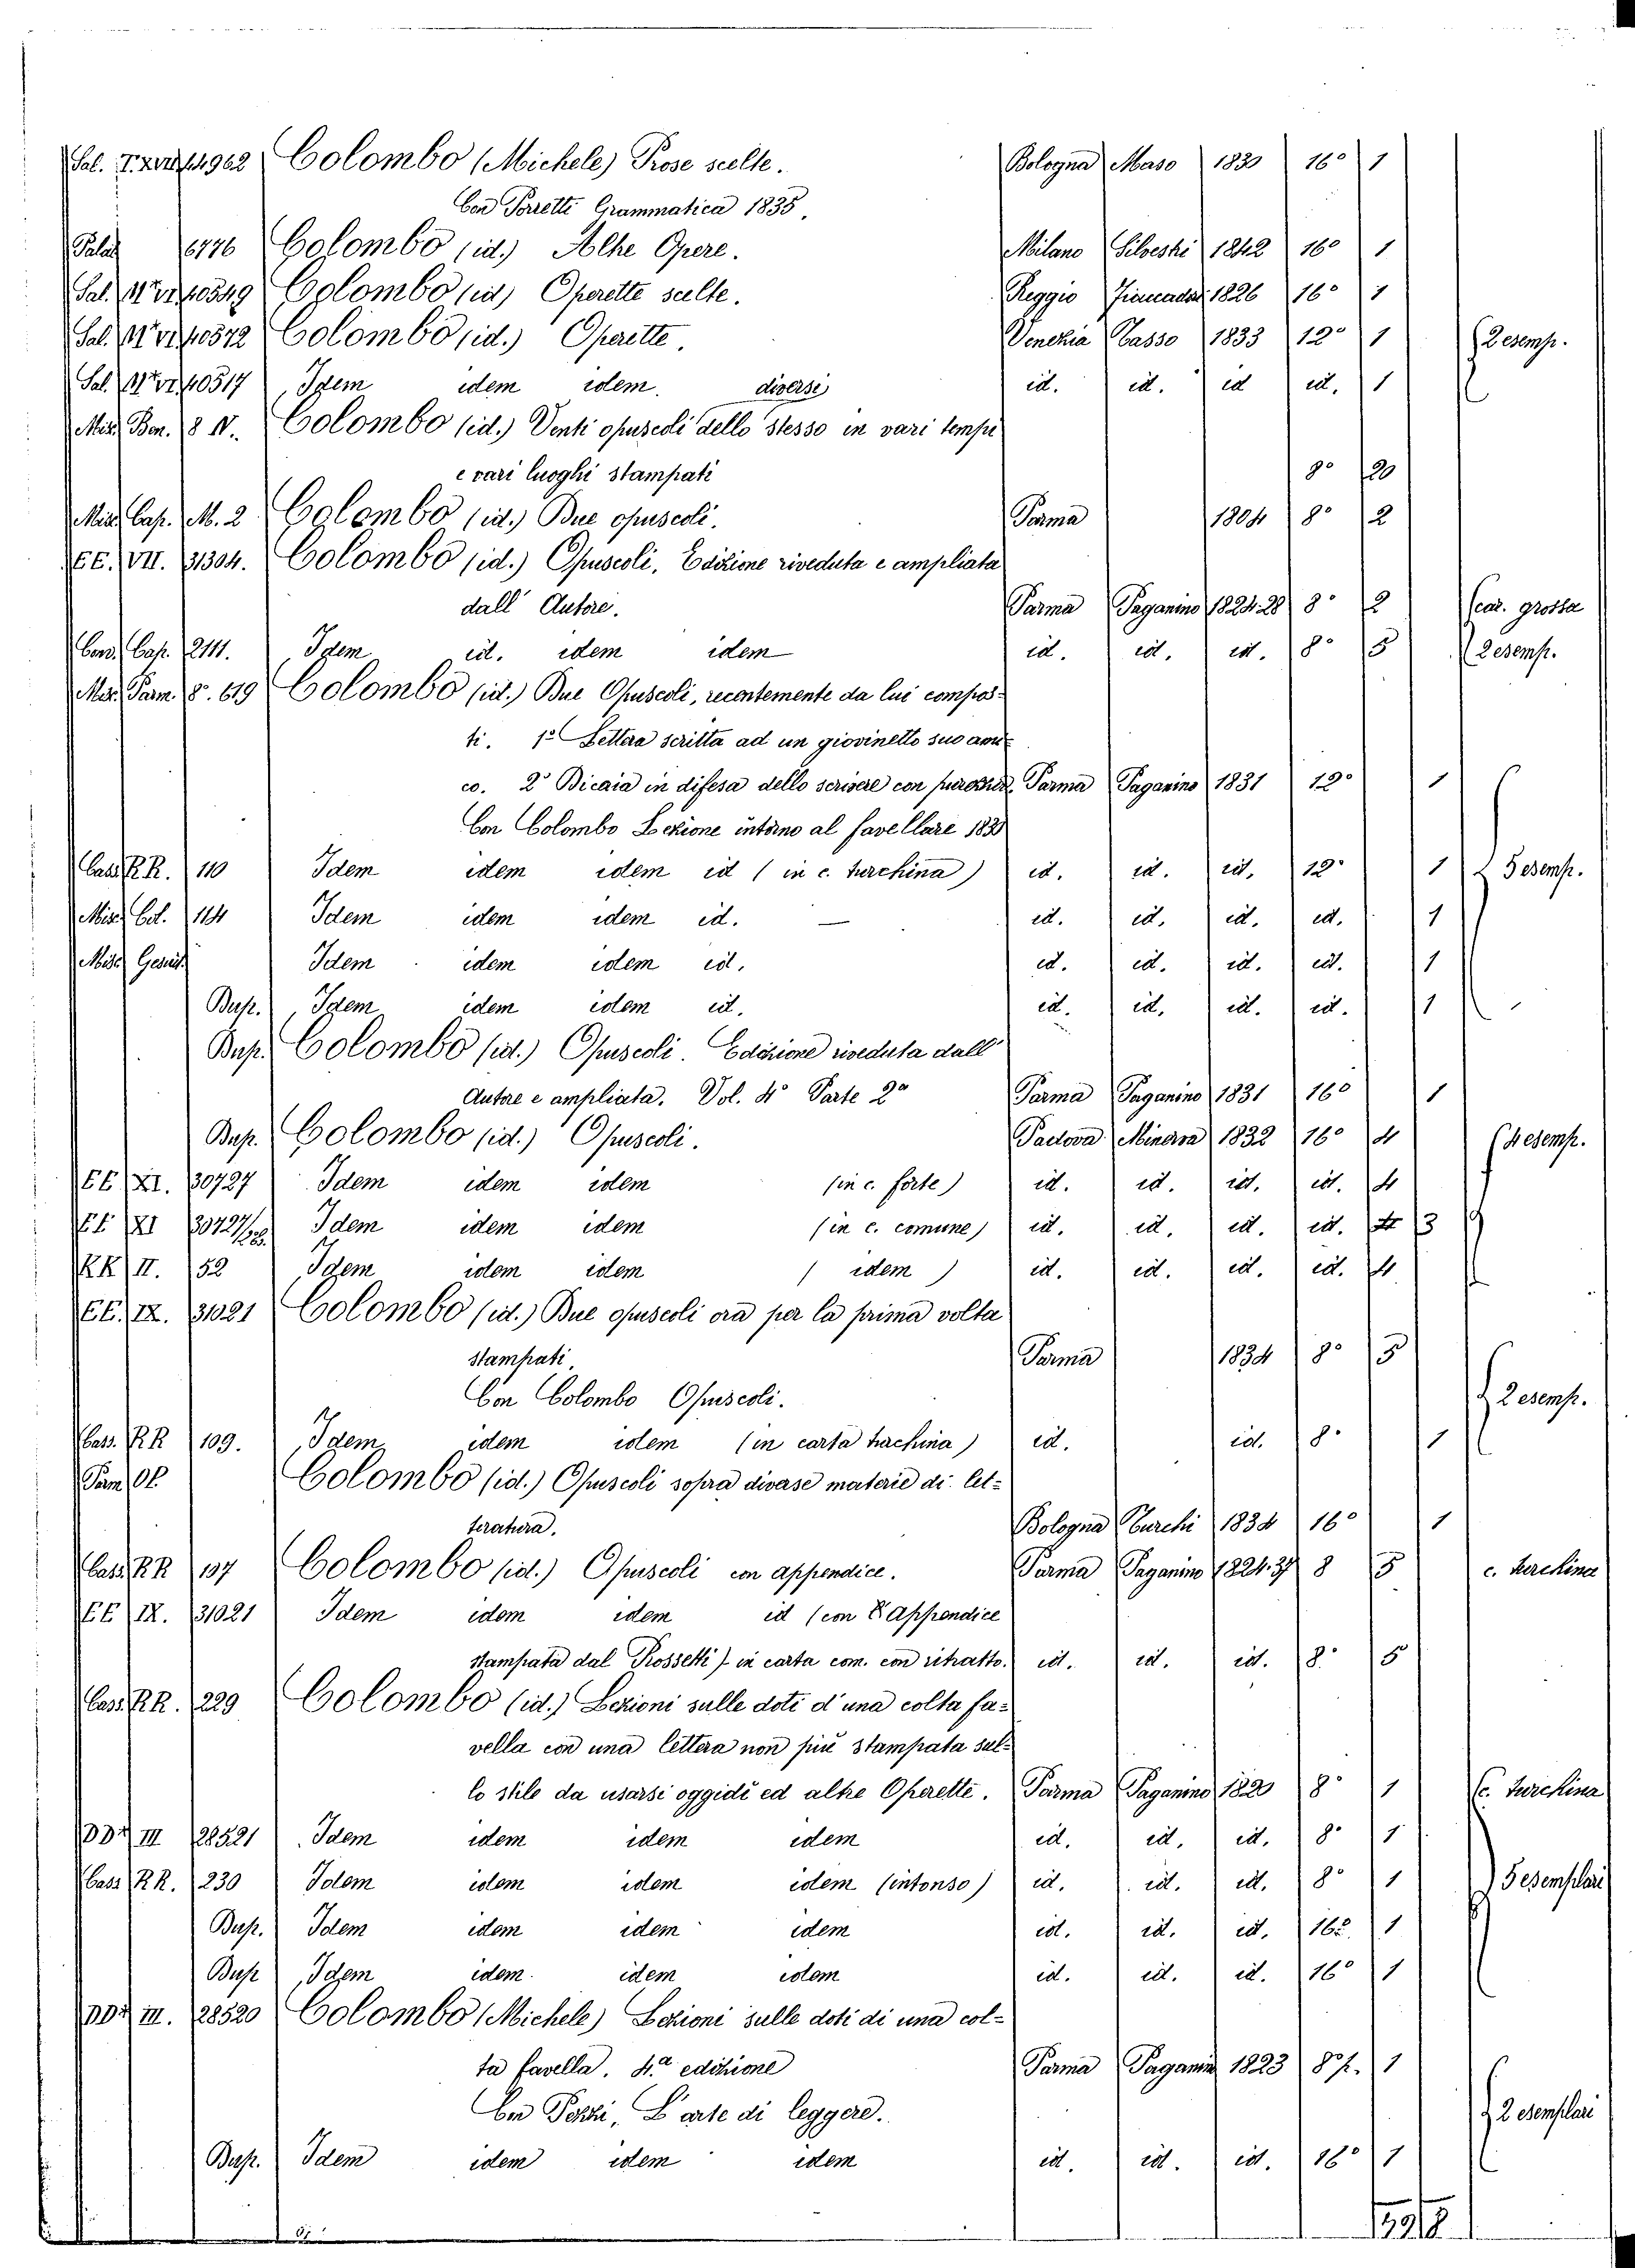 Sal. 14962 Colombo (Michele) Prose scelte. Bologna Maso 1830 16° 1
Con Porretti Grammatica 1835.
Palat 6776 Colombo (id.) Alke Opere. Milano Silvestri 1842 16° 1
Sal. 40549 Colombo (id) Operette scelte. Reggio 1826 16° 1
Sal. 40572 Colombo (id.) Operette. Venezia Tasso 1833 12° 1 2 esemp.
Sal. 40517 Idem idem idem. diversi id. id. id id. 1
Misc. Bon. 8 IV. Colombo (id.) Venti opuscoli dello stesso in vari tempi
e vari luoghi stampati 8° 20
Misc. Cap. M. 2 Colombo (id.) Due opuscoli. Parma 1804 8° 2
EE. VII. 31304. Colombo (id.) Opuscoli, Edizione riveduta e ampliata
dall' Autore. Parma Paganino 1824.28 8° 2 car. grossa
Cap. 2111. Idem id. idem idem id. id. id. 8° 5 2 esemp.
Misc. Parm. 8°. 619 Colombo (id.) Due Opuscoli, recentemente da lui compos-
ti. 1° Lettera scritta ad un giovinetto suo ami-
co. 2° Dicaia in difesa dello scrivere con Parma Paganino 1831 12° 1
Con Colombo Lezione intorno al favellare 1830
Cass. RR. 110 Idem idem idem id (in c. turchina) id. id. id. 12° 1 5 esemp.
Misc. 114 Idem idem idem id. — id. id. id. id. 1
Misc. Idem idem idem id. id. id. id. id. 1
Dup. Idem idem idem id. id. id. id. id. 1
Dup. Colombo (id.) Opuscoli. Edizione riveduta dall'
Autore e ampliata. Vol. 4° Parte 2a Parma Paganino 1831 16° 1
Dup. Colombo (id.) Opuscoli. Padova Minerva 1832 16° 4 4 esemp.
EE XI. 30727 Idem idem idem (in c. forte) id. id. id. id. 4
EE XI 30727/28. Idem idem idem (in c. comune) id. id. id. id. 3
KK II. 52 Idem idem idem ( idem ) id. id. id. id. 4
EE. IX. 31021 Colombo (id.) Due opuscoli ora per la prima volta
stampati. Parma 1834 8° 5
Con Colombo Opuscoli. 2 esemp.
Cass. RR 109. Idem idem idem (in carta turchina) id. id. 8° 1
Parm Colombo (id.) Opuscoli sopra diverse materie di let-
teratura. Bologna Turchi 1834 16° 1
Cass. RR 107 Colombo (id.) Opuscoli con appendice. Parma Paganino 1824.37 8 5 c. turchina
EE IX. 31021 Idem idem idem id (con l'Appendice
stampata dal Rossetti) in carta com. con ritratto. id. id. id. 8° 5
Cass. RR. 229 Colombo (id.) Lezioni sulle doti d'una colta fa-
vella con una lettera non più stampata sul-
lo stile da usarsi oggidì ed altre Operette. Parma Paganino 1820 8° 1 c. turchina
III 28521 Idem idem idem idem id. id. id. 8° 1
Cass. RR. 230 Idem idem idem idem (intonso) id. id. id. 8° 1 5 esemplari
Dup. Idem idem idem idem id. id. id. 16°. 1
Dup Idem idem idem idem id. id. id. 16° 1
III. 28520 Colombo (Michele) Lezioni sulle doti di una col-
ta favella. 4.a edizione Parma Paganino 1823 8° p. 1
Con Pozzi, L'arte di leggere. 2 esemplari
Dup. Idem idem idem idem id. id. id. 16° 1